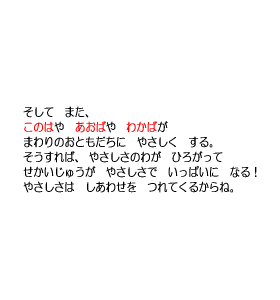 そして　また、
このはや　あおばや　わかばが
まわりのおともだちに　やさしく　する。
そうすれば、 やさしさのわが　ひろがって
せかいじゅうが　やさしさで　いっぱいに　なる！
やさしさは　しあわせを　つれてくるからね。